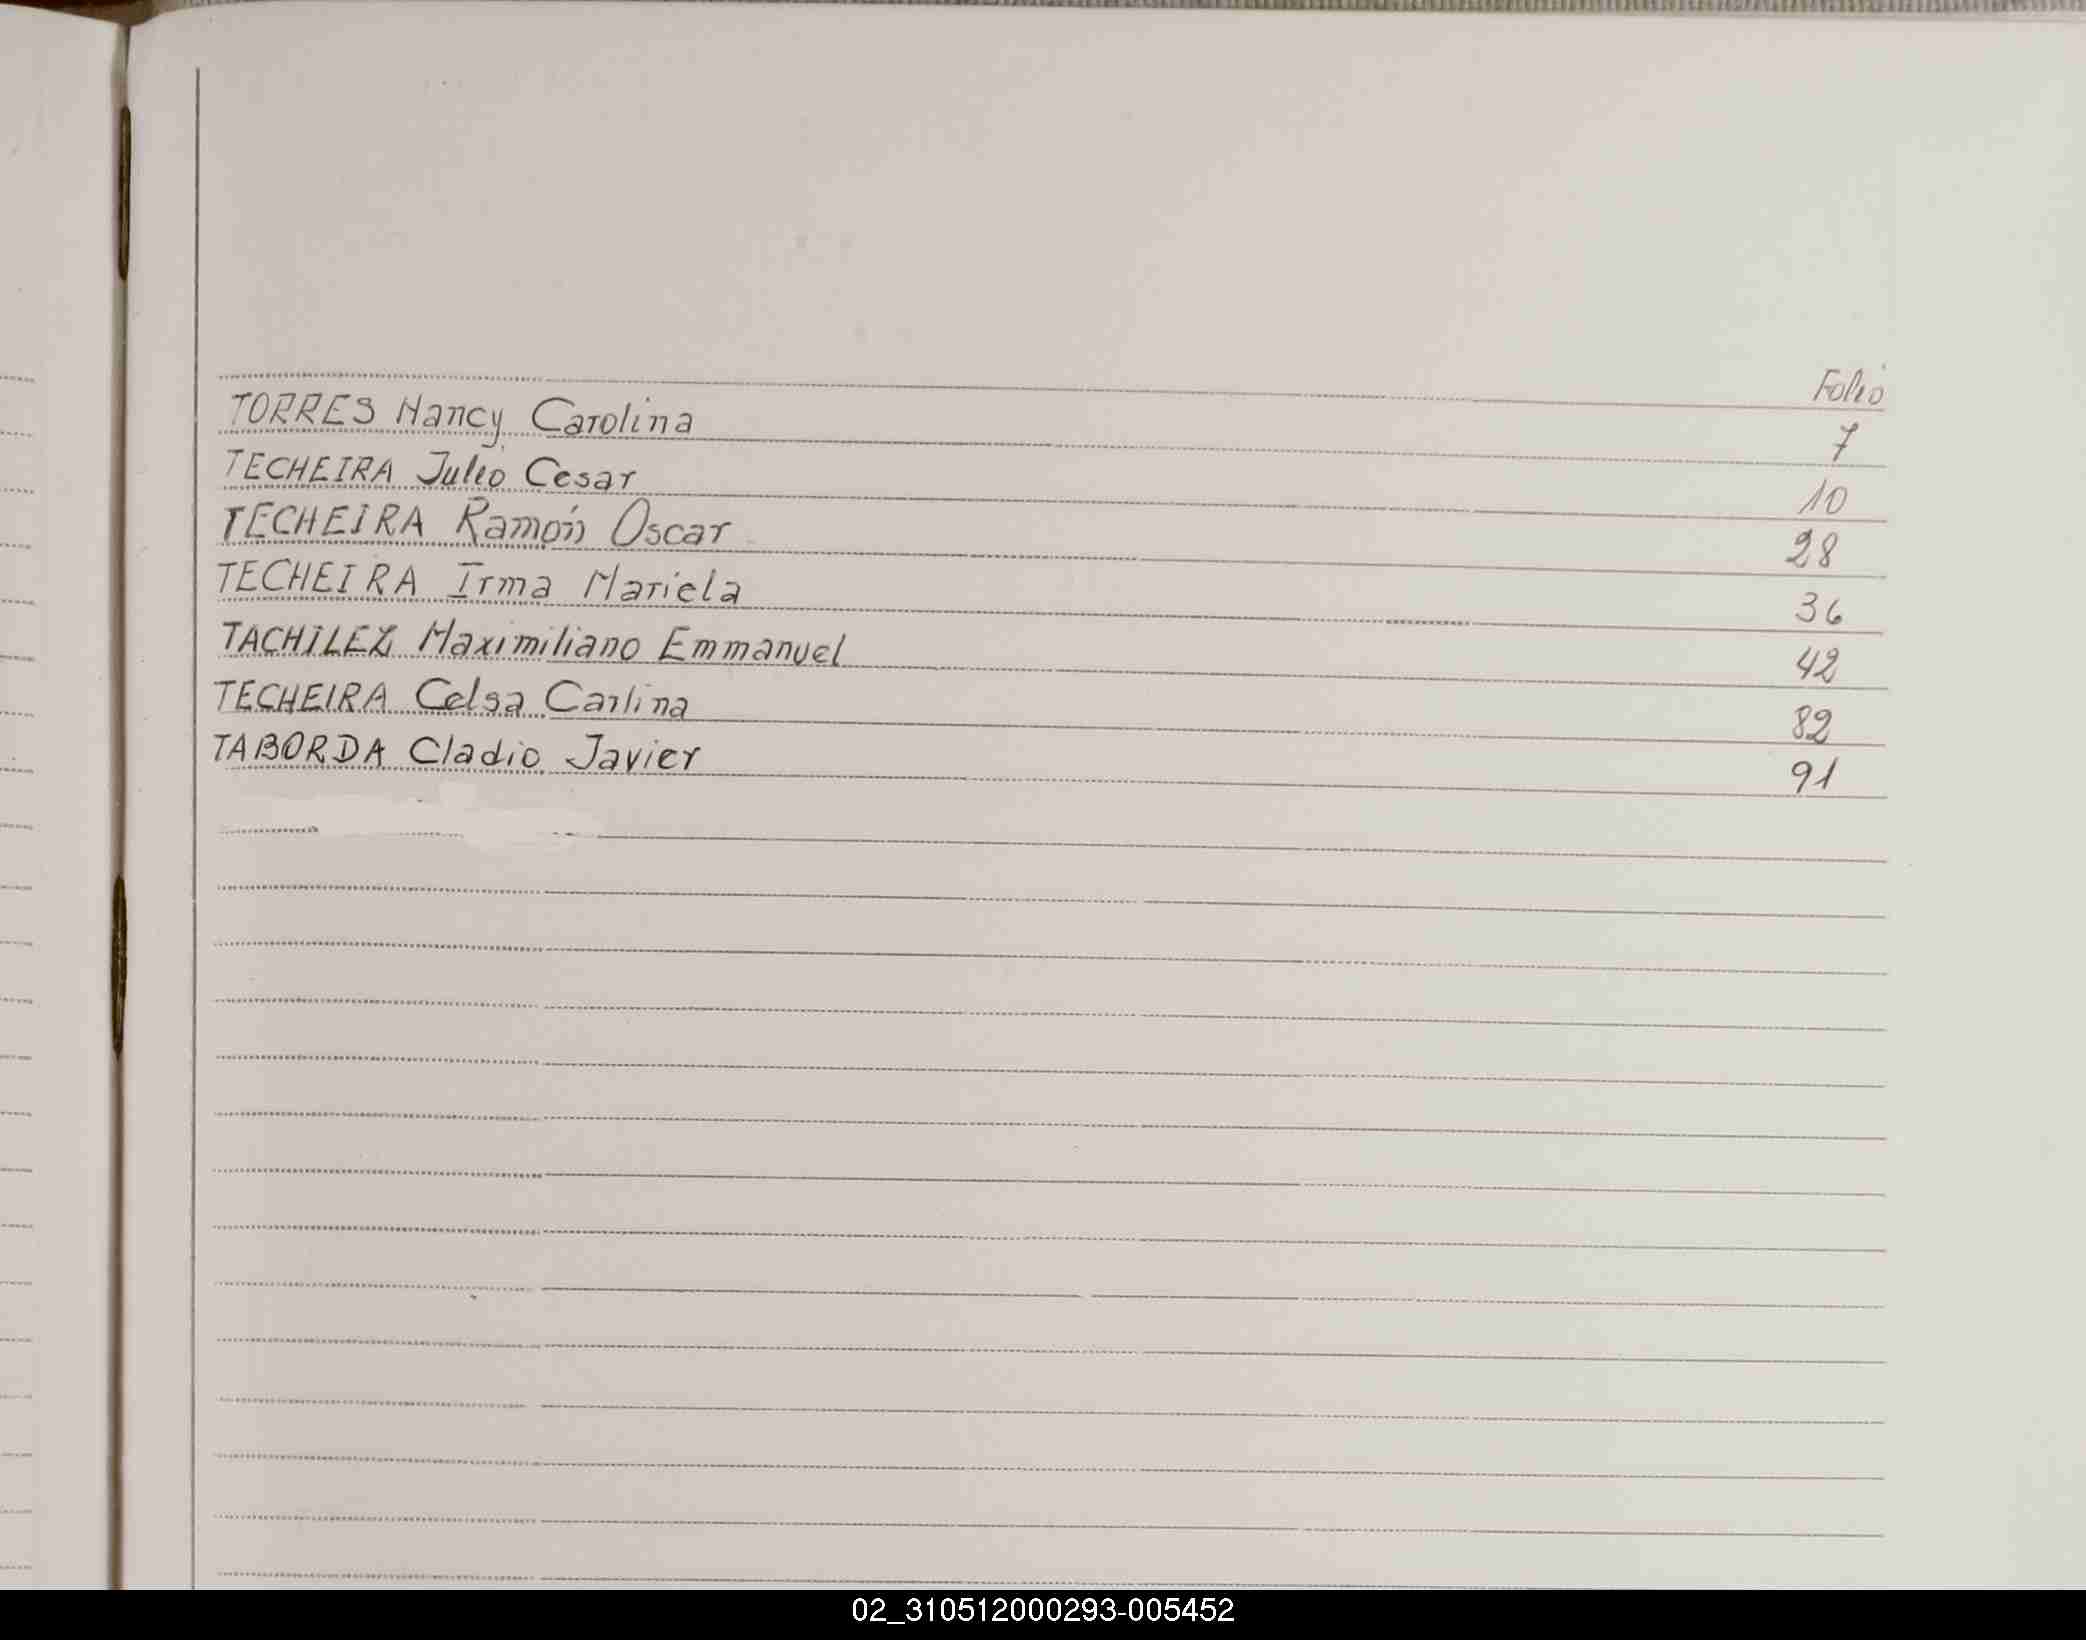 Folio
TORRES Nancy Carolina 7
TECHEIRA Julio Cesar 10
TECHEIRA Ramón Oscar 28
TECHEIRA Irma Mariela 36
TACHILEZ Maximiliano Emmanuel 42
TECHEIRA Celsa Carlina 82
TABORDA Cladio Javier 91
02_310512000293-005452